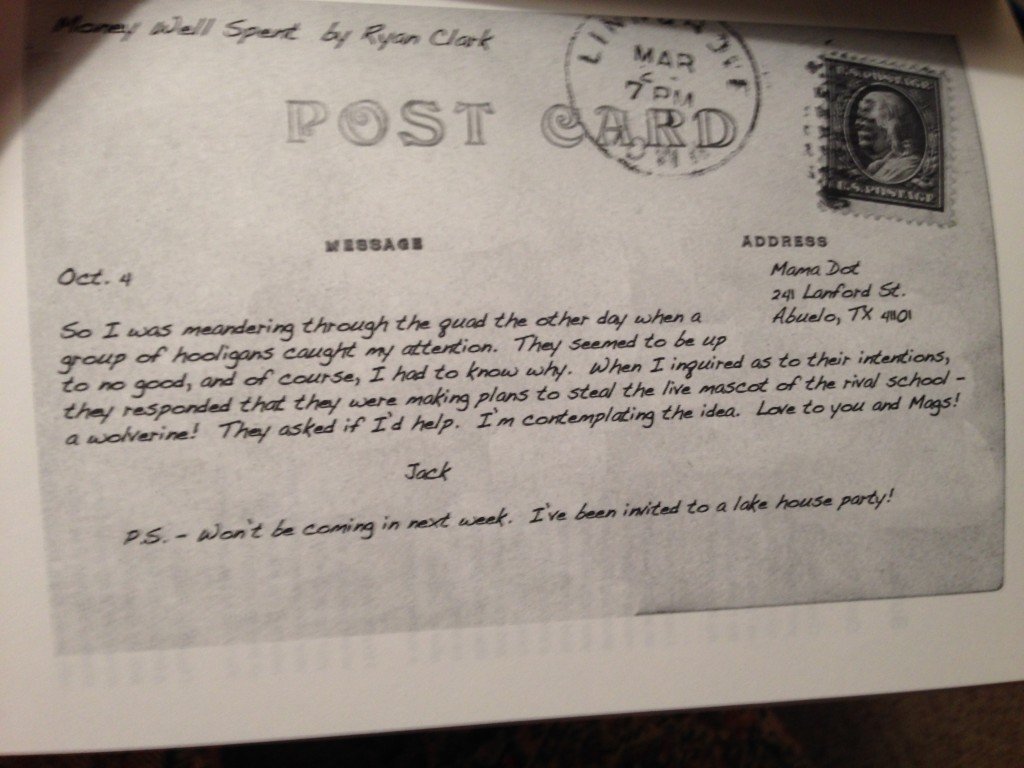 Money Well Spent by Ryan Clark
MAR
7 PM
POST CARD
U.S. POSTAGE
MESSAGE
ADDRESS
Oct. 4
Mama Dot
241 Lanford St.
Abuelo, TX 41101
So I was meandering through the quad the other day when a
group of hooligans caught my attention. They seemed to be up
to no good, and of course, I had to know why. When I inquired as to their intentions,
they responded that they were making plans to steal the live mascot of the rival school -
a wolverine! They asked if I'd help. I'm contemplating the idea. Love to you and Mags!
Jack
P.S. - Won't be coming in next week. I've been invited to a lake house party!